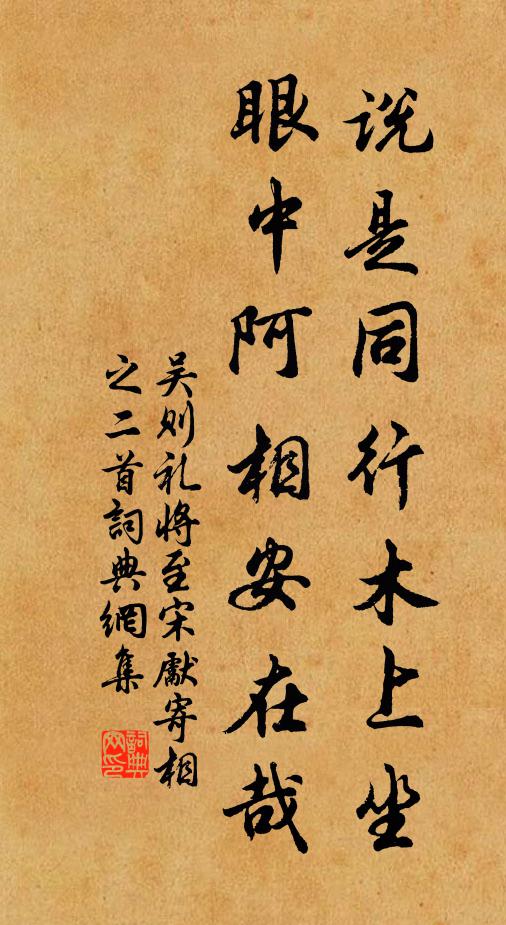 说是同行木上坐
眼中阿相安在哉
吴则礼将至宋献寄相
之二首词典網集
詞典網印